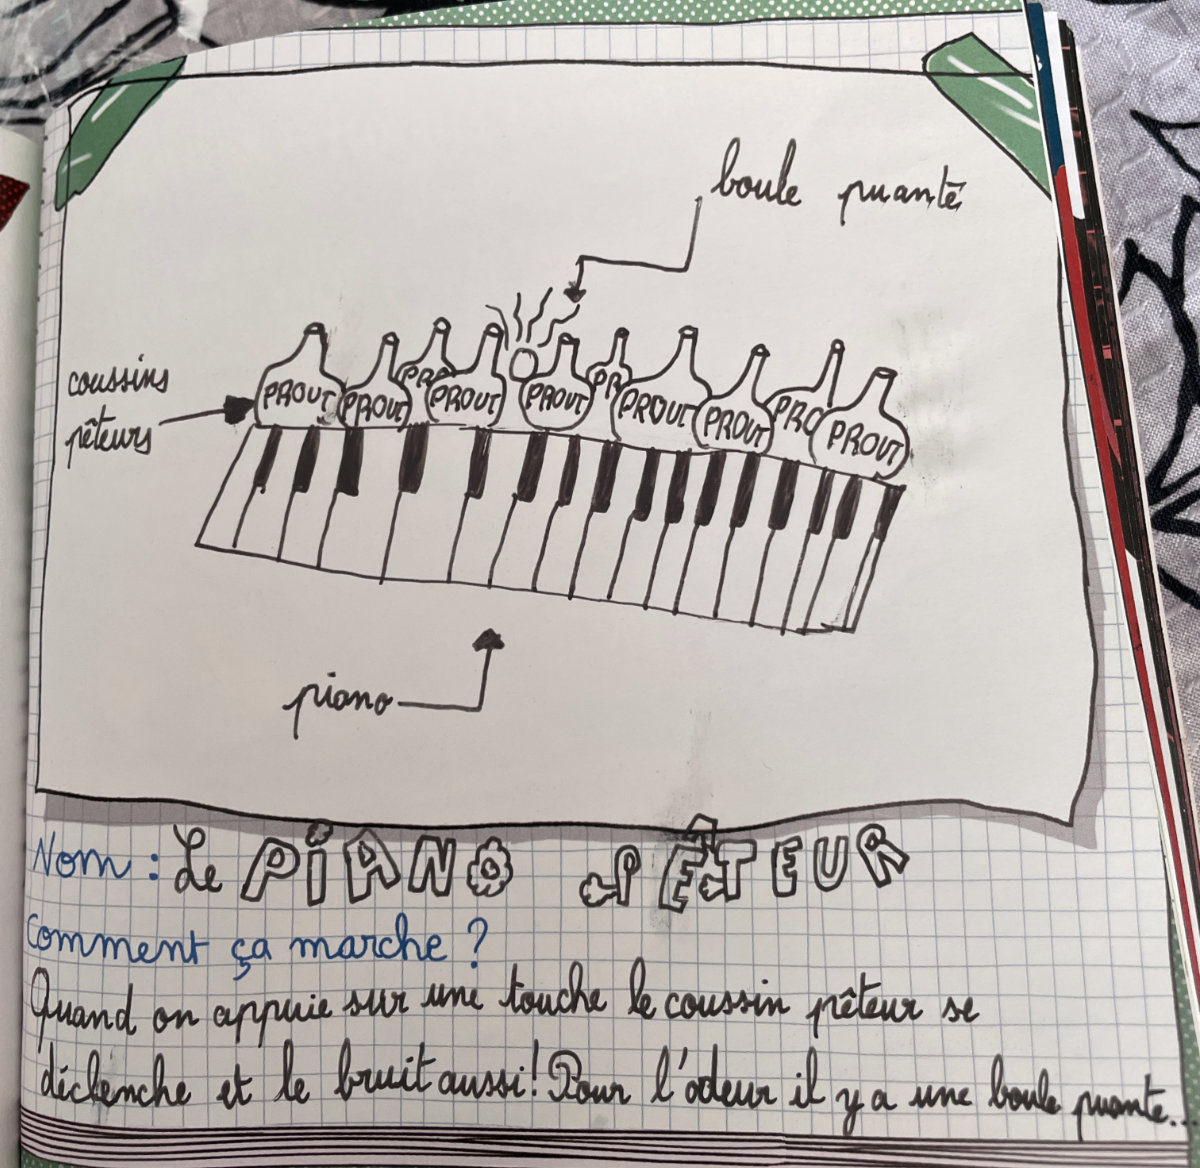 boule puante
coussins
pêteurs
PROUT
PROUT
PRO
PROUT
PROUT
PR
PROUT
PROUT
PRO
PROUT
piano
Nom : Le PIANO PÊTEUR
Comment ça marche ?
Quand on appuie sur une touche le coussin pêteur se
déclenche et le bruit aussi ! Pour l'odeur il y a une boule puante...